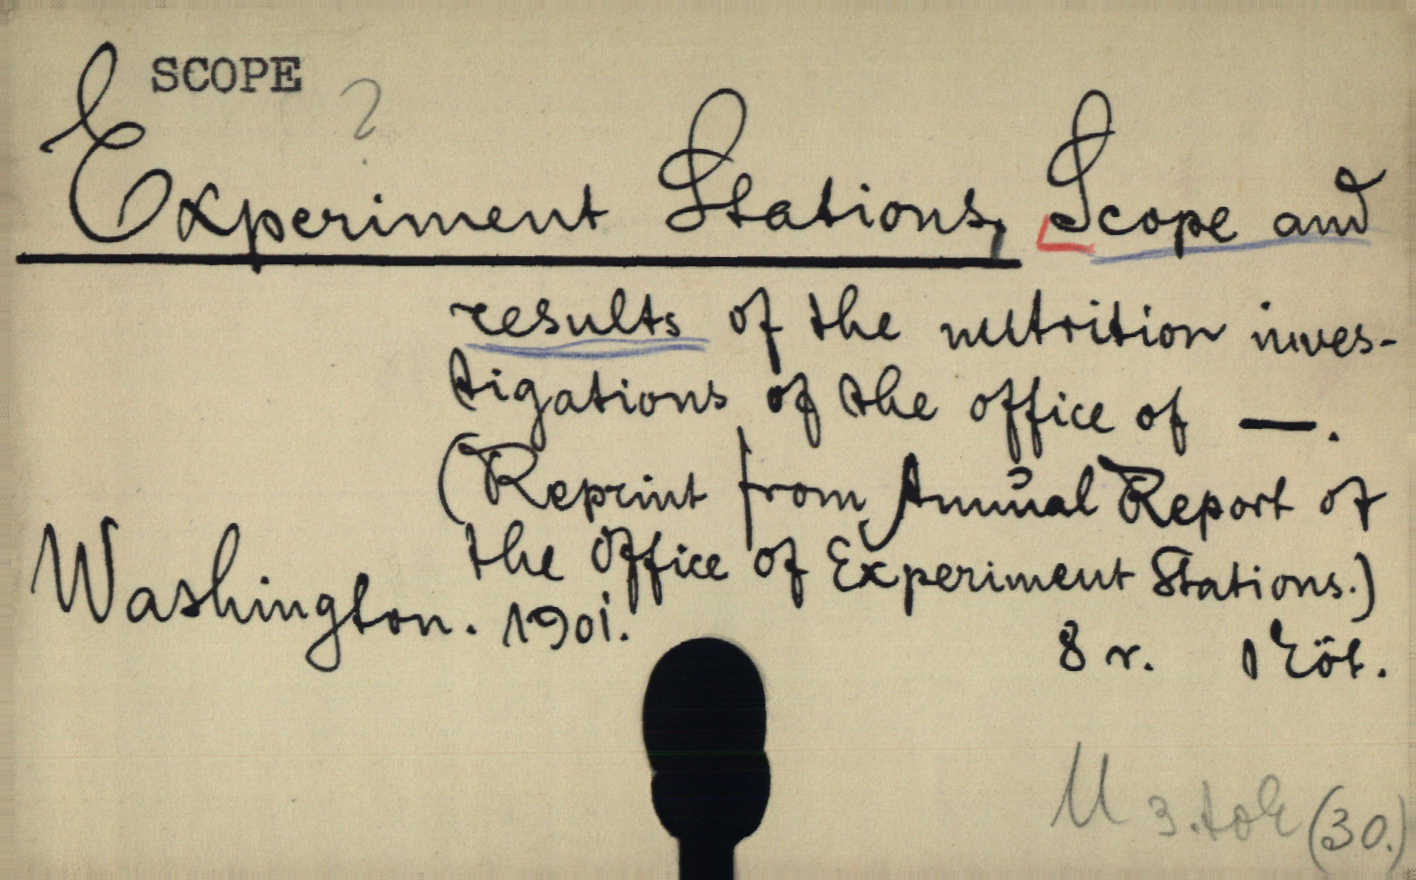 SCOPE
?
Experiment Stations, Scope and
results of the nutrition inves-
tigations of the office of —.
(Reprint from Annual Report of
the Office of Experiment Stations.)
Washington. 1901.
8 r. 1 köt.
M 3. tok (30.)